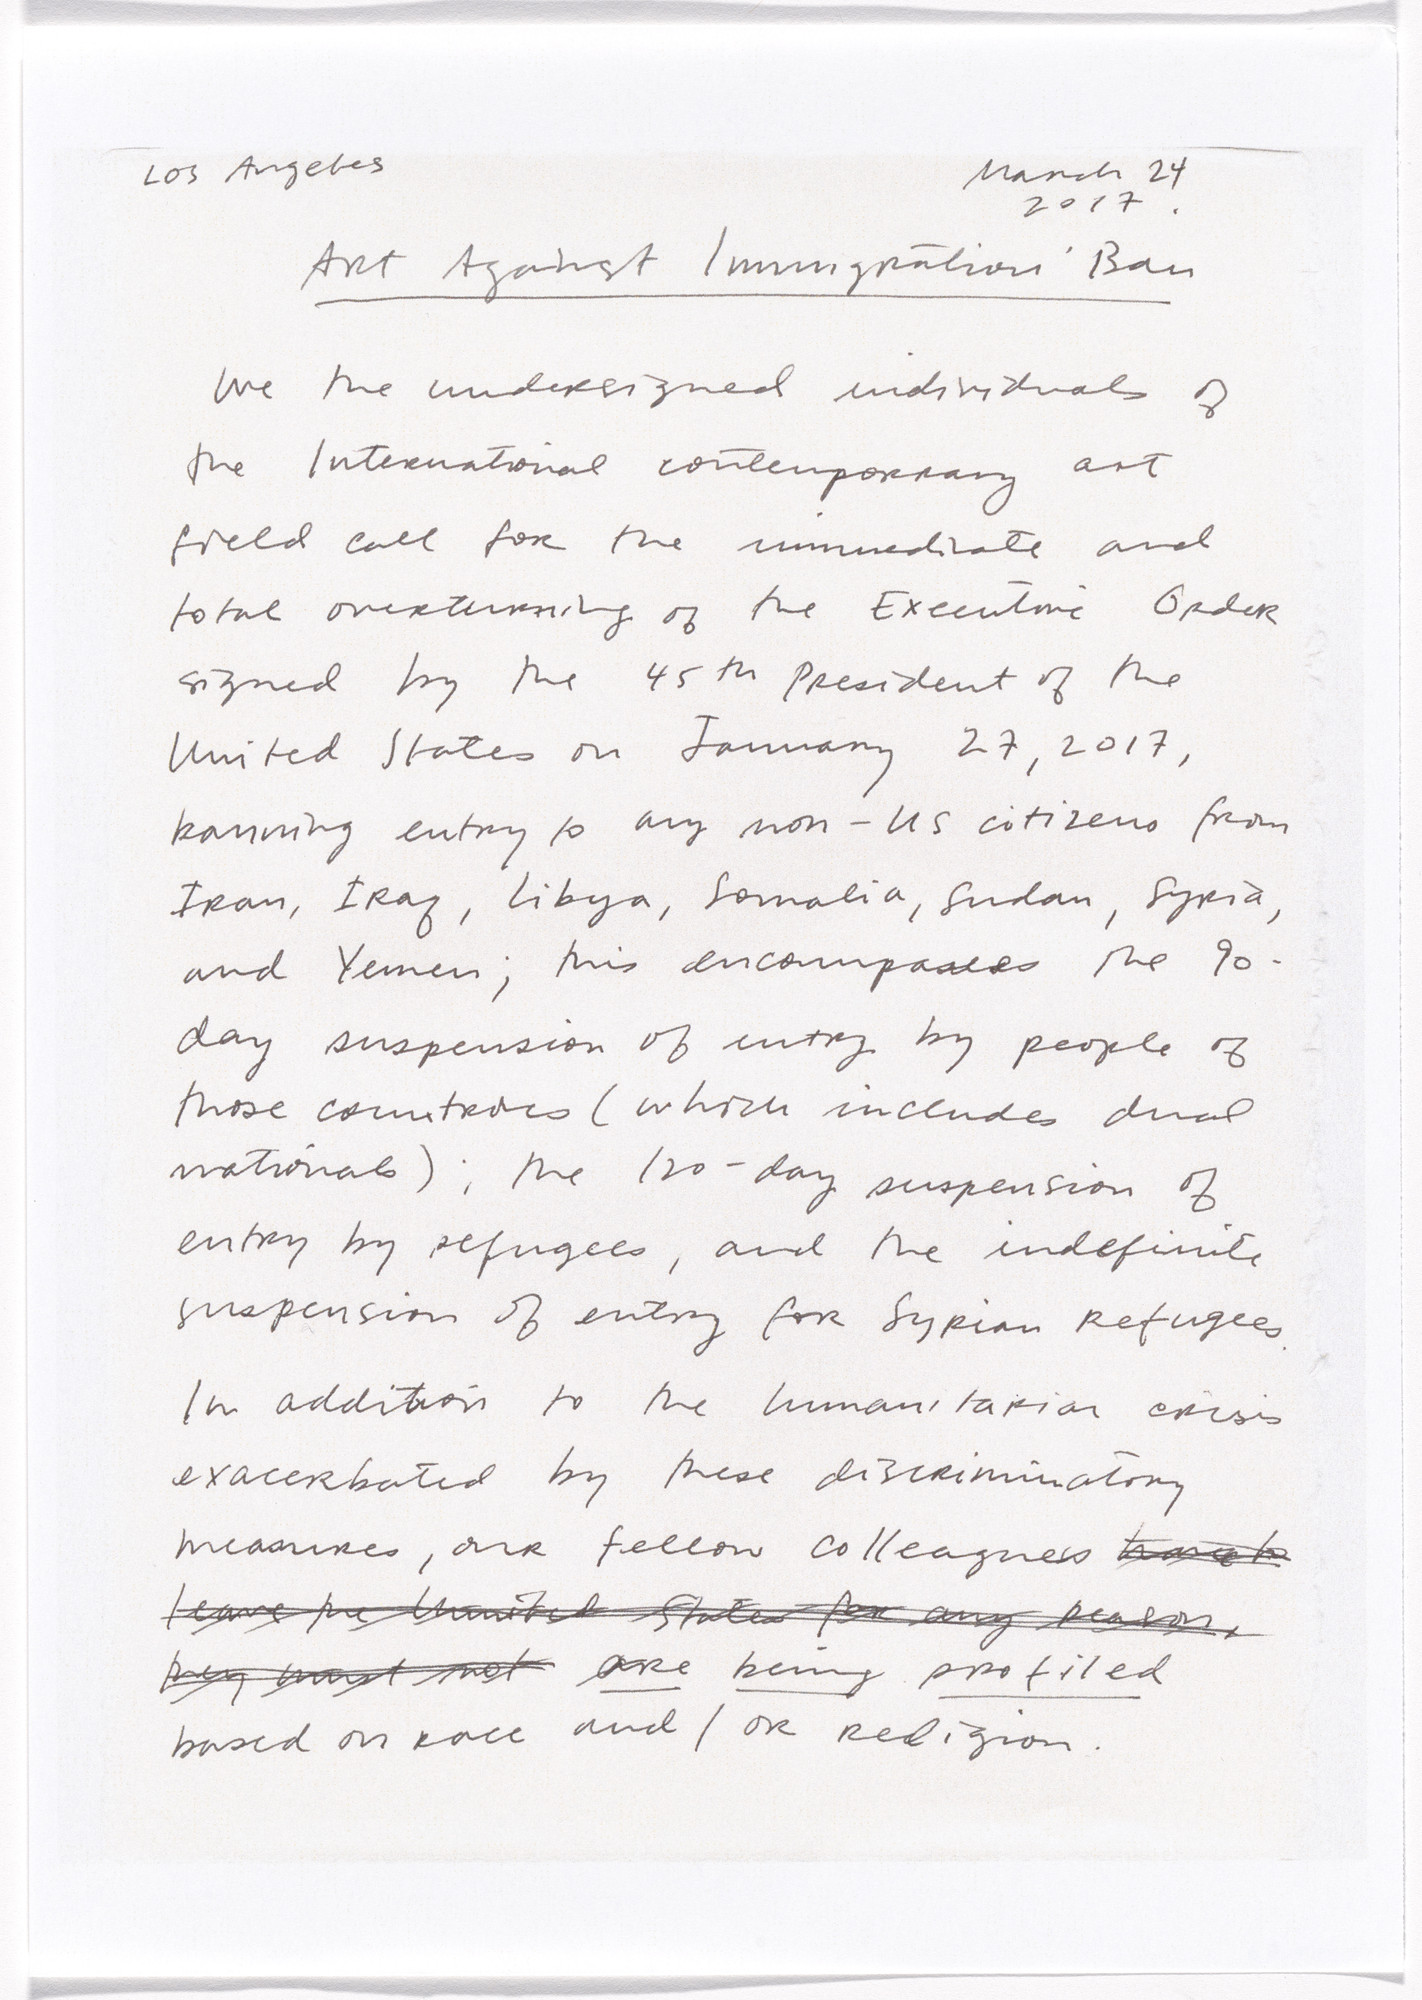 Los Angeles
March 24
2017.
Art Against Immigration Ban
We the undersigned individuals of
the International contemporary art
field call for the immediate and
total overturning of the Executive Order
signed by the 45th President of the
United States on January 27, 2017,
banning entry to any non-US citizens from
Iran, Iraq, Libya, Somalia, Sudan, Syria,
and Yemen; this encompasses the 90-
day suspension of entry by people of
those countries (which includes dual
nationals); the 120-day suspension of
entry by refugees, and the indefinite
suspension of entry for Syrian refugees.
In addition to the humanitarian crisis
exacerbated by these discriminatory
measures, our fellow colleagues
leave the United States for any reason,
they must not are being profiled
based on race and/or religion.